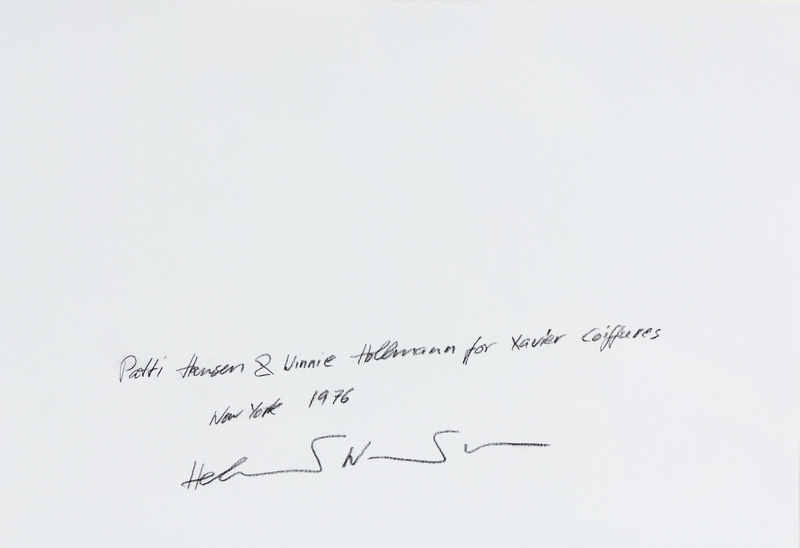 Patti Hansen & Winnie Hollmann for Xavier Coiffures
New York 1976
Helmut Newton